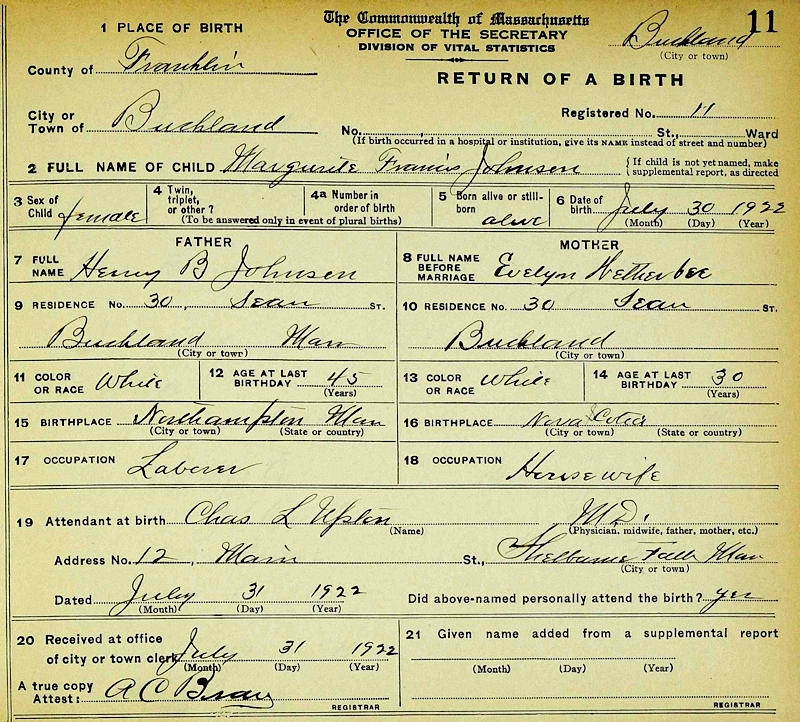 11
The Commonwealth of Massachusetts
OFFICE OF THE SECRETARY
DIVISION OF VITAL STATISTICS
RETURN OF A BIRTH
Buckland
(City or town)
1 PLACE OF BIRTH
County of Franklin
City or Town of Buckland
Registered No. 11
No. St., Ward
(If birth occurred in a hospital or institution, give its NAME instead of street and number)
2 FULL NAME OF CHILD Margurite Francis Johnson { If child is not yet named, make supplemental report, as directed
3 Sex of Child female
4 Twin, triplet, or other ?
4a Number in order of birth
(To be answered only in event of plural births)
5 Born alive or still-born alive
6 Date of birth July 30 1922
(Month) (Day) (Year)
FATHER
7 FULL NAME Henry B Johnson
9 RESIDENCE No. 30, ST.
Buckland Mass
(City or town)
11 COLOR OR RACE White
12 AGE AT LAST BIRTHDAY 45
(Years)
15 BIRTHPLACE Northampton Mass
(City or town) (State or country)
17 OCCUPATION Laborer
MOTHER
8 FULL NAME BEFORE MARRIAGE Evelyn Wetherbee
10 RESIDENCE No. 30 ST.
Buckland
(City or town)
13 COLOR OR RACE White
14 AGE AT LAST BIRTHDAY 30
(Years)
16 BIRTHPLACE Nova Scotia
(City or town) (State or country)
18 OCCUPATION Housewife
19 Attendant at birth Chas L Upton M.D.
(Name) (Physician, midwife, father, mother, etc.)
Address No. 12, Main St., Shelburne Falls Mass
(City or town)
Dated July 31 1922 Did above-named personally attend the birth? yes
(Month) (Day) (Year)
20 Received at office of city or town clerk July 31 1922
(Month) (Day) (Year)
A true copy Attest: A C
REGISTRAR
21 Given name added from a supplemental report
(Month) (Day) (Year)
REGISTRAR